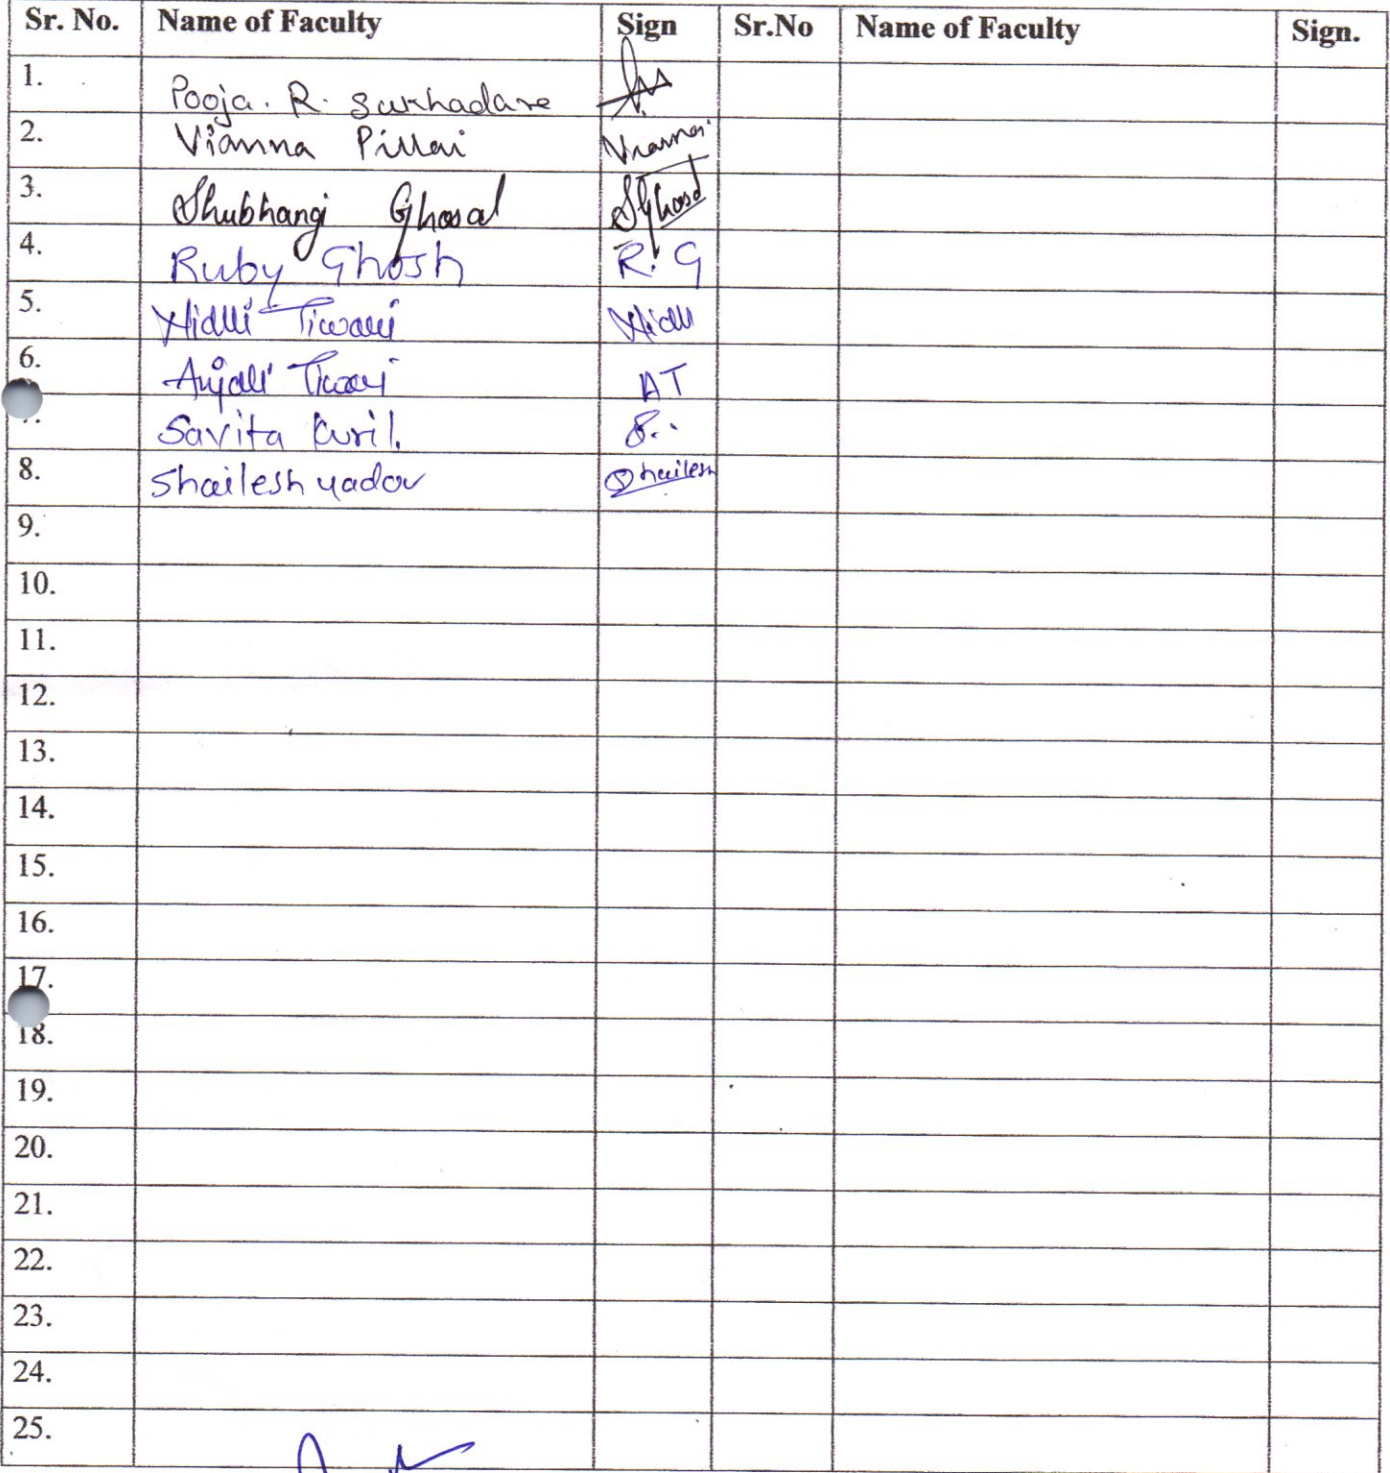 Sr. No. Name of Faculty Sign Sr.No Name of Faculty Sign.
1. Pooja. R.
2. Vianna Pillai Vianna
3. Shubhangi Ghosal SGhosal
4. Ruby Ghosh R. G
5. Nidhi Tiwari Nidhi
6. Anjali Tiwari AT
Savita Kuril. S..
8. Shailesh yadav Shailesh
9.
10.
11.
12.
13.
14.
15.
16.
17.
18.
19.
20.
21.
22.
23.
24.
25.